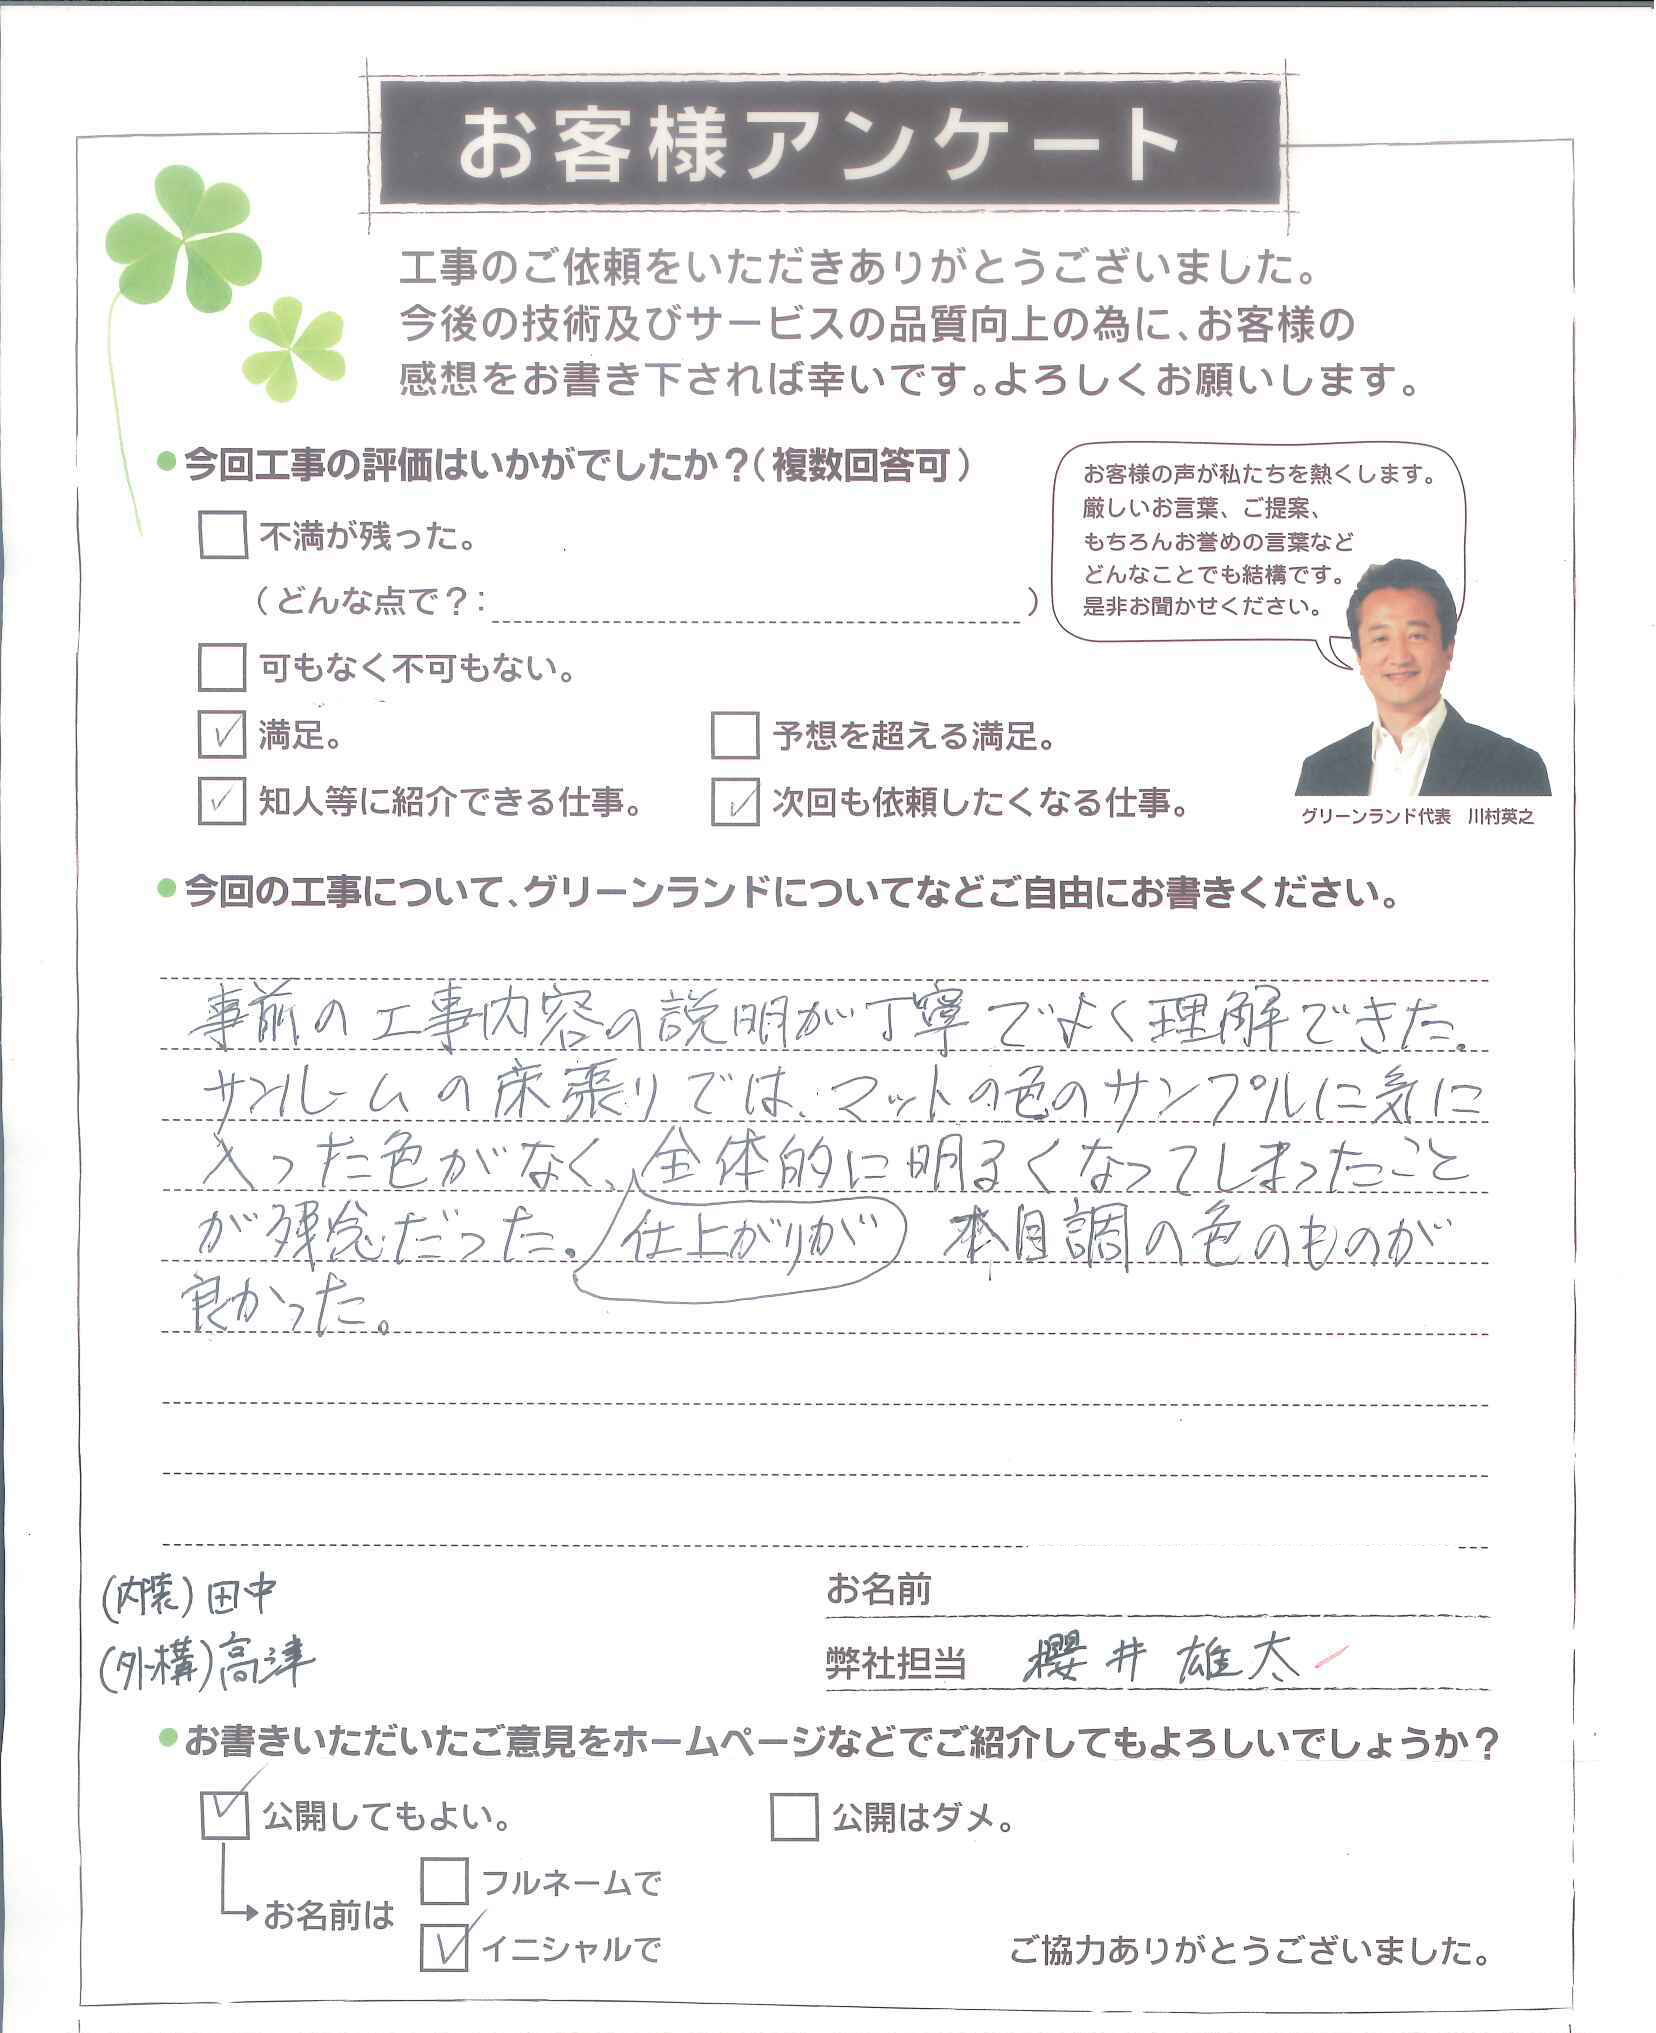 お客様アンケート
工事のご依頼をいただきありがとうございました。
今後の技術及びサービスの品質向上の為に、お客様の
感想をお書き下されば幸いです。よろしくお願いします。
今回工事の評価はいかがでしたか?(複数回答可)
不満が残った。
(どんな点で?: )
可もなく不可もない。
満足。
予想を超える満足。
知人等に紹介できる仕事。
次回も依頼したくなる仕事。
お客様の声が私たちを熱くします。
厳しいお言葉、ご提案、
もちろんお誉めの言葉など
どんなことでも結構です。
是非お聞かせください。
グリーンランド代表 川村英之
今回の工事について、グリーンランドについてなどご自由にお書きください。
事前の工事内容の説明が丁寧でよく理解できた。
サンルームの床張りでは、マットの色のサンプルに気に
入った色がなく、仕上がりが全体的に明るくなってしまったこと
が残念だった。木目調の色のものが
良かった。
(内装)田中
(外構)高津
お名前
弊社担当 櫻井雄太
お書きいただいたご意見をホームページなどでご紹介してもよろしいでしょうか?
公開してもよい。
公開はダメ。
お名前は
フルネームで
イニシャルで
ご協力ありがとうございました。